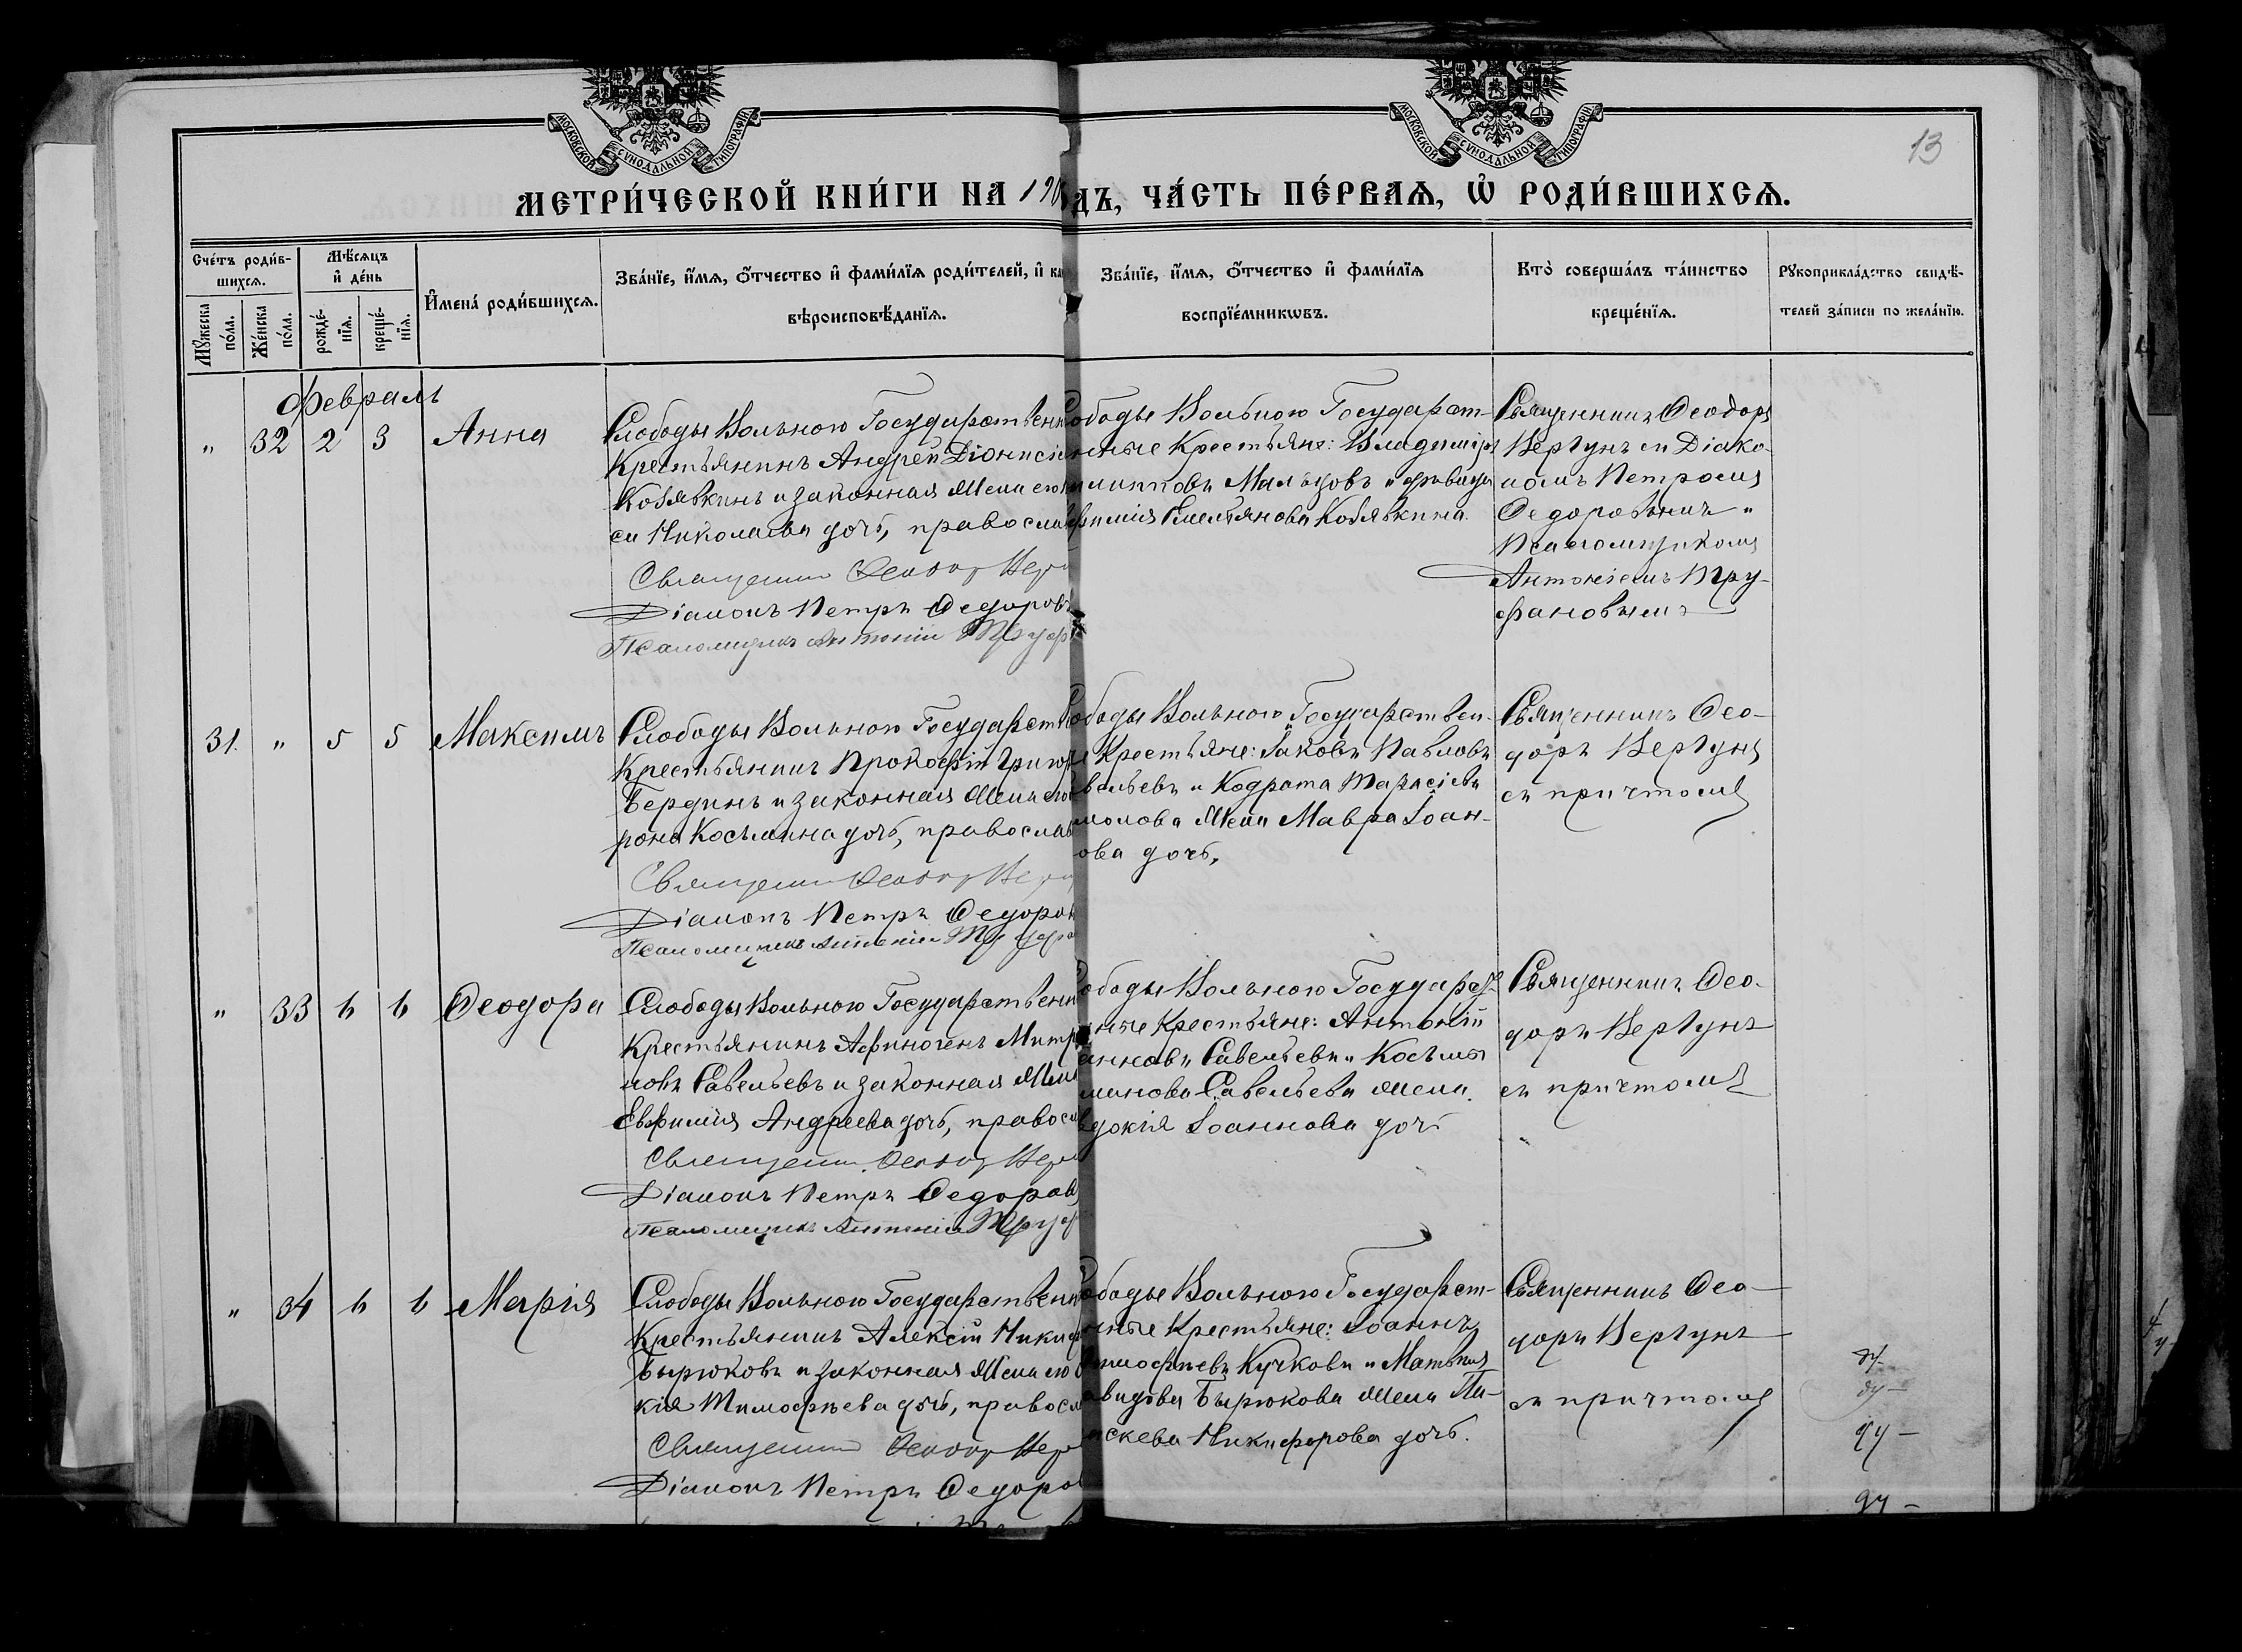 МОСКОВСКОЙ СУНОДАЛЬНОЙ ТИПОГРАФІИ
МОСКОВСКОЙ СУНОДАЛЬНОЙ ТИПОГРАФІИ
13
МЕТРИ́ЧЕСКОЙ КНИ́ГИ НА 190
дъ, ЧА́СТЬ ПЕ́РВАѦ, Ѡ҆ РОДИ́ВШИХСѦ.
Сче́тъ роди́в-
шихсѧ.
Мꙋ́жеска по́ла.
Же́нска по́ла.
Мѣ́сѧцъ и҆ де́нь
рожде́-нїѧ.
креще́-нїѧ.
И҆мена̀ роди́вшихсѧ.
Зва́нїе, и҆́мѧ, ѻ҆́тчество и҆ фами́лїѧ роди́телей, и҆ ка
вѣроисповѣ́данїѧ.
Зва́нїе, и҆́мѧ, ѻ҆́тчество и҆ фами́лїѧ
воспрїе́мникѡвъ.
Кто̀ соверша́лъ та́инство
креще́нїѧ.
Рꙋкоприкла́дство свидѣ́-
телей за́писи по жела́нїю.
Февраль
" 32 2 3 Анна
Слободы Вольнаго Государственн
Крестьянинъ Андрей Діонисіе
Кобявкинъ и законная жена его
са Николаева дочь, православ
Священникъ Ѳеодоръ Вер
Діаконъ Петръ Ѳедоровъ
Псаломщикъ Антоній Труф
ободы Вольнаго Государст-
нные Крестьяне: Владиміръ
Мальцовъ и девица
фимія Емельянова Кобявкина.
Священникъ Ѳеодоръ
Вергунъ съ Діако-
номъ Петромъ
Ѳедоровымъ и
Псаломщикомъ
Антоніемъ Тру-
фановымъ
31. " 5 5 Максимъ
Слободы Вольнаго Государств
Крестьянинъ Прокофій Григор
Бердинъ и законная жена его
рона Косьмина дочь, православ
Священникъ Ѳеодоръ Вер
Діаконъ Петръ Ѳедоров
Псаломщикъ Антоній Труфа
ободы Вольнаго Государствен-
е Крестьяне: Іаковъ Павловъ
вельевъ и Кодрата Тарасіева
молова жена Мавра Іоан-
ова дочь,
Священникъ Ѳео-
доръ Вергунъ
съ причтомъ
" 33 6 6 Ѳеодора
Слободы Вольнаго Государственн
Крестьянинъ Афиногенъ Митр
новъ Савельевъ и законная жена
Евфимія Андреева дочь, правосл
Священникъ Ѳеодоръ Вер
Діаконъ Петръ Ѳедоровъ
Псаломщикъ Антоній Труф
ободы Вольнаго Государст
нные Крестьяне: Антоній
анновъ Савельевъ и Косьмы
Савельева жена
докія Іоаннова дочь
Священникъ Ѳео-
доръ Вергунъ
съ причтомъ
" 34 6 6 Марія
Слободы Вольнаго Государственн
Крестьянинъ Алексій Никиф
Бирюковъ и законная жена его
кія Тимофеева дочь, правосл
Священникъ Ѳеодоръ Вер
Діаконъ Петръ Ѳедоров
ободы Вольнаго Государст-
нные Крестьяне: Іоаннъ
имофеевъ Кучковъ и Матвія
авидова Бирюкова жена Па-
аскева Никифорова дочь.
Священникъ Ѳео-
доръ Вергунъ
съ причтомъ